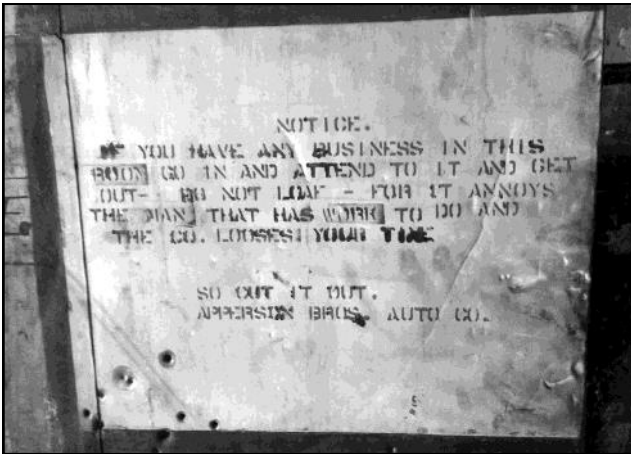 NOTICE.
IF YOU HAVE ANY BUSINESS IN THIS
ROOM GO IN AND ATTEND TO IT AND GET
OUT- DO NOT LOAF - FOR IT ANNOYS
THE MAN THAT HAS WORK TO DO AND
THE CO. LOOSES YOUR TIME
SO CUT IT OUT.
APPERSON BROS. AUTO CO.